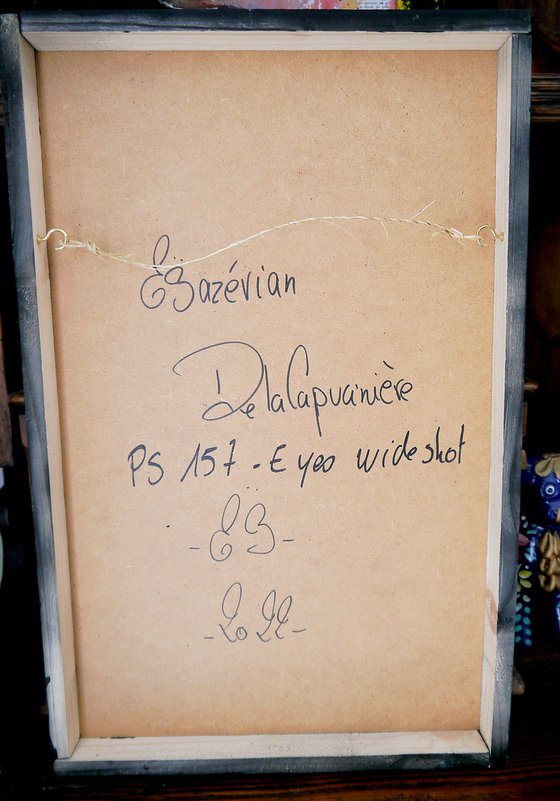 ËBazévian
De laCapucinière
PS 157 - Eyes wide shot
- ËB -
- 2022 -